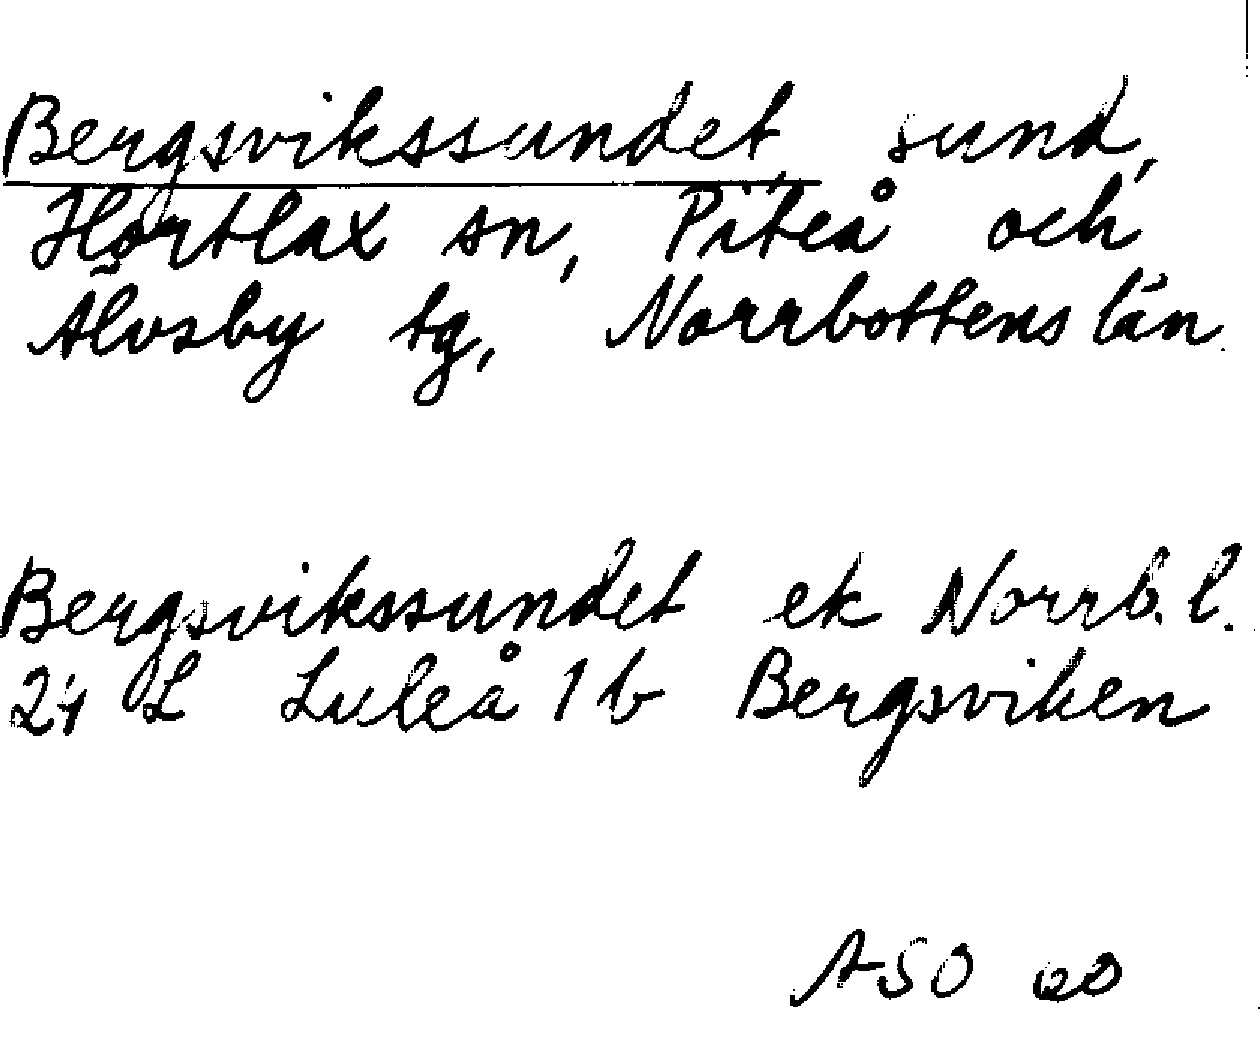 Bergsvikssundet, sund,
Hortlax sn, Piteå och
Älvsby tg, Norrbottens län.
Bergsvikssundet ek Norrb. l.
24 L Luleå 1 b Bergsviken
ASO